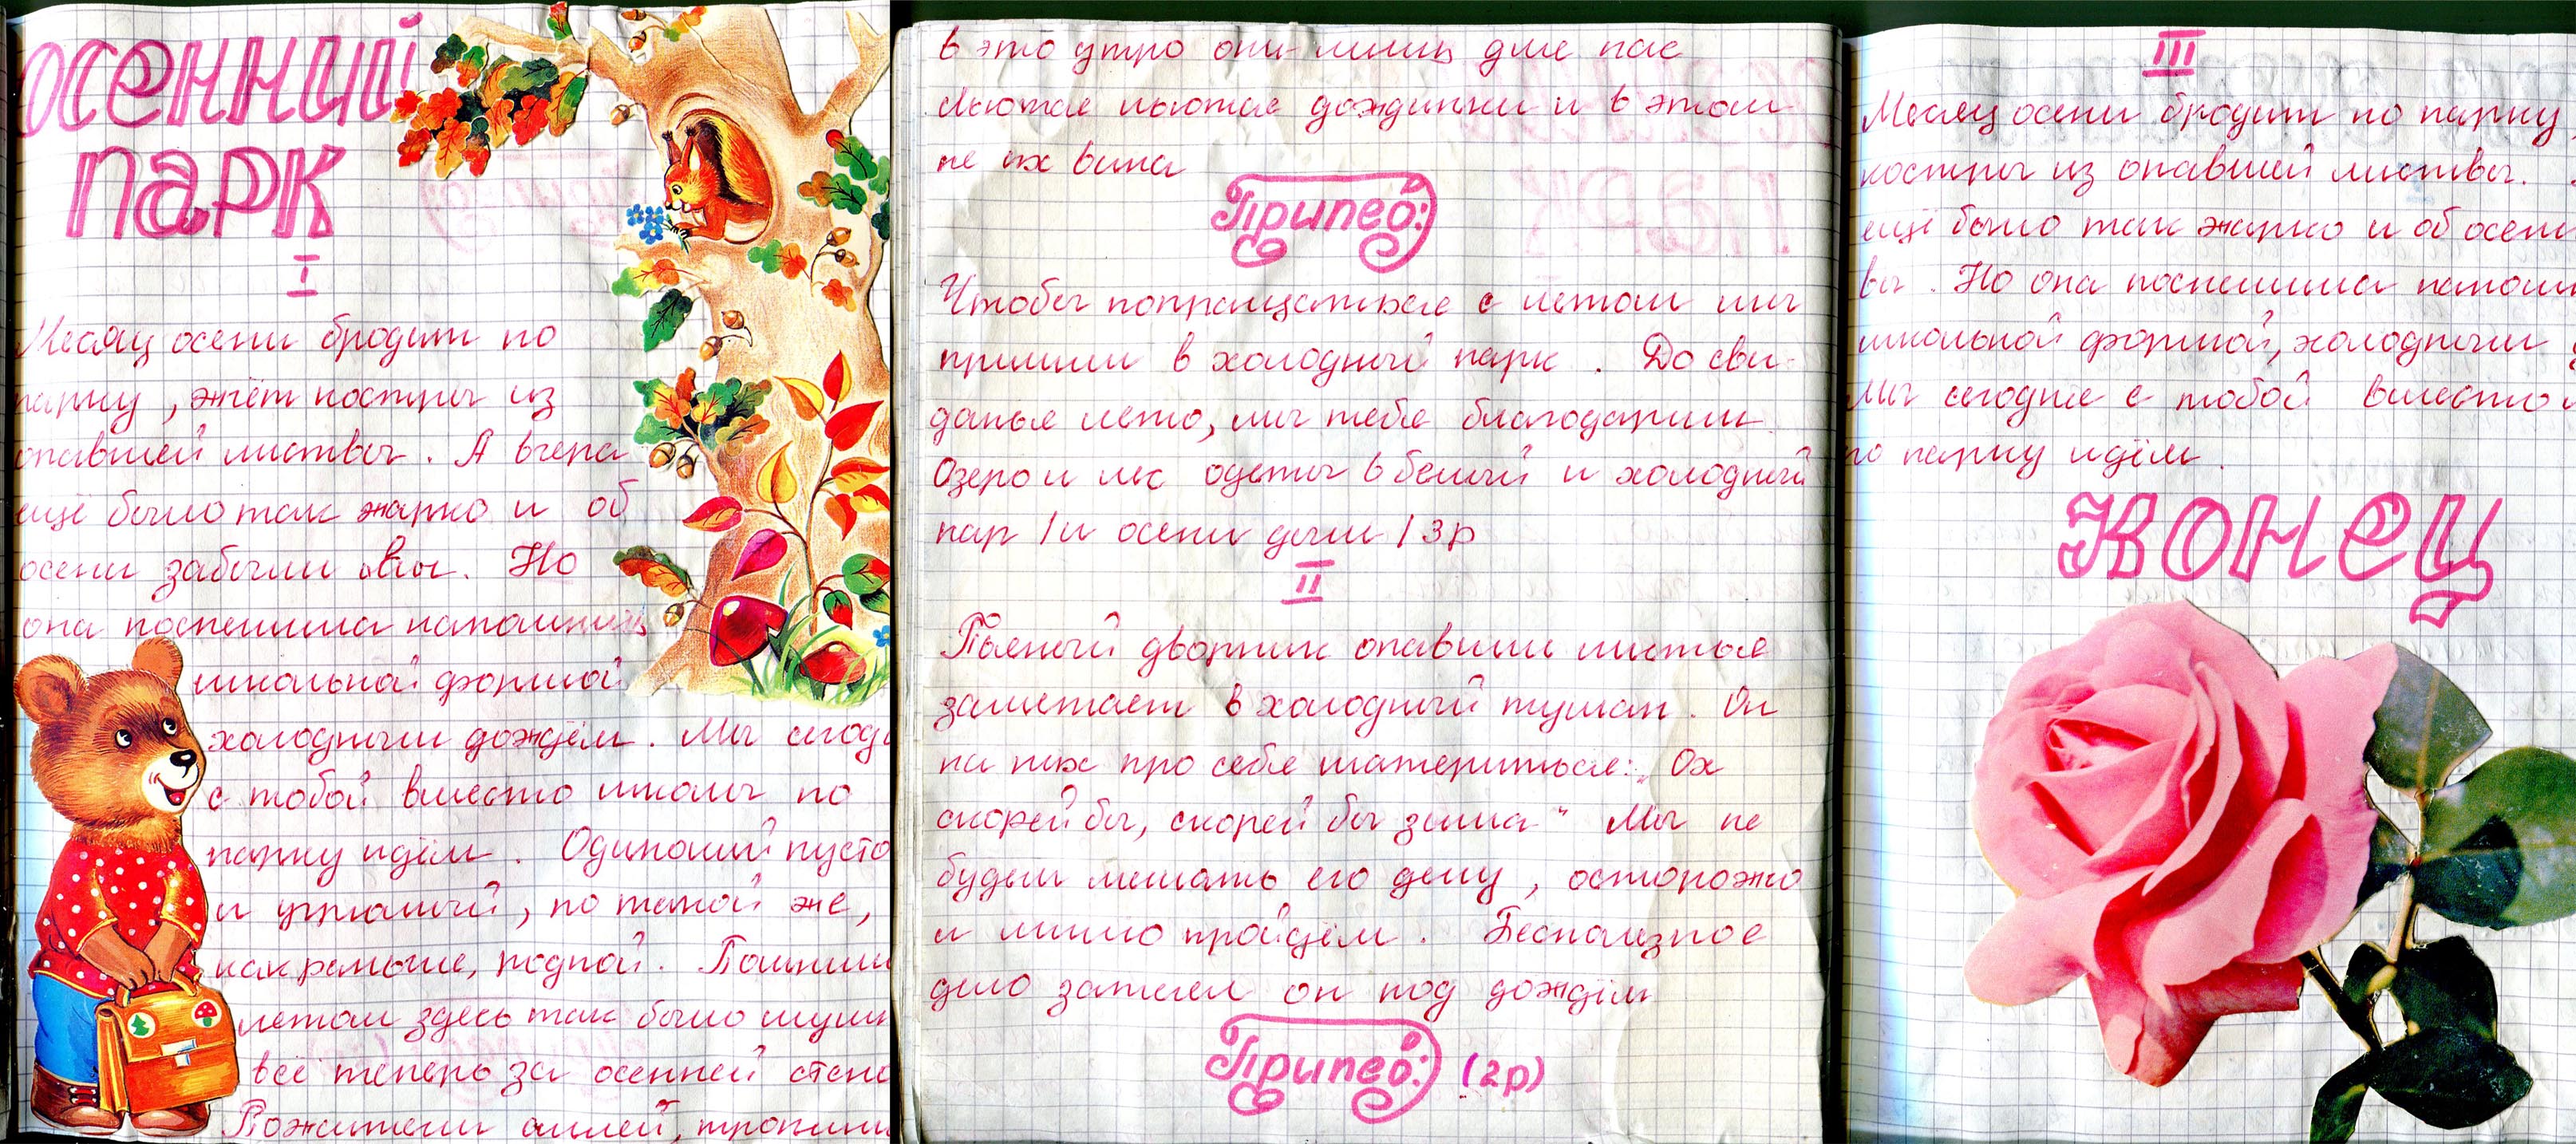 осенний
парк
I
Месяц осени бродит по
парку, жжёт костры из
опавшей листвы. А вчера
ещё было так жарко и об
осени забыли вы. Но
она поспешила напомнить
школьной формой
холодным дождём. Мы сегод
с тобой вместо школы по
парку идём. Одинокий пусто
и угрюмый, но такой же,
как раньше, родной. Помним
летом здесь так было шумн
всё теперь за осенней стено
Пожители аллей, тропин
в это утро они лишь для нас
льются льются дождинки и в этом
не их вина
Припев:
Чтобы попращаться с летом мы
пришли в холодный парк. До сви-
данья лето, мы тебя благодарим
Озеро и лес одеты в белый и холодный
пар /и осени дым/ 3р
II
Пьяный дворник опавши листья
заметает в холодный туман. Он
на них про себя материться: „Ох
скорей бы, скорей бы зима" Мы не
будем мешать его делу, осторожно
и мимо пройдём. Бесполезное
дело затеял он под дождём
Припев: (2р)
III
Месяц осени бродит по парку
костры из опавшей листвы.
ещё было так жарко и об осени
вы. Но она поспешила напомн
школьной формой, холодным
Мы сегодня с тобой вместо
по парку идём.
конец